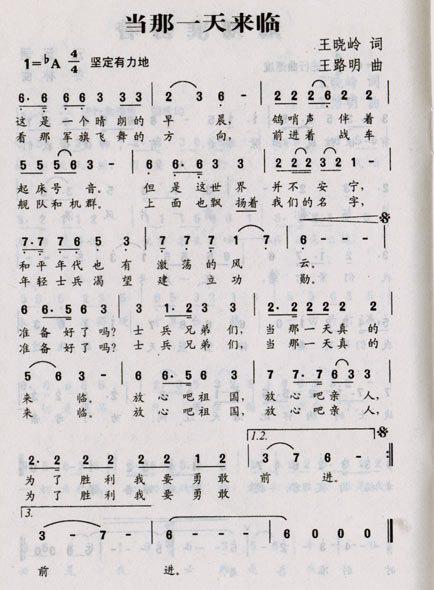 当那一天来临
王晓岭 词
1=♭A 4/4 坚定有力地 王路明 曲
6· 6 6 6 3 3 3 | 2 3 6 - | 2 2 2 6 2 2 |
这是一个晴朗的早晨，鸽哨声伴着
看那军旗飞舞的方向，前进着战车
5 5 5 6 3 - | 6 6· 6 3 3 | 2 2 2 3 2 1 |
起床号音。但是这世界并不安宁，
舰队和机群。上面也飘扬着我们的名字，
7· 7 7 6 5 3 | 7· 7 7 1 7 | 6 - - - |
和平年代也有激荡的风云。
年轻士兵渴望建立功勋。
6 6· 5 6 - | 3 1· 2 3 3 - | 2· 2 2 2 2 2 |
准备好了吗？士兵兄弟们，当那一天真的
准备好了吗？士兵兄弟们，当那一天真的
5 6 3 - | 3· 1 2 3 3 - | 7· 7 7 6 3 3 |
来临。放心吧祖国，放心吧亲人，
来临。放心吧祖国，放心吧亲人，
1.2.
2· 2 2 2 2 2 1 2 | 3 7 6 - :|
为了胜利我要勇敢前进。
为了胜利我要勇敢
3.
3 - 7 - | 6 - - - | 6 - - - | 6 0 0 0 ||
前进。